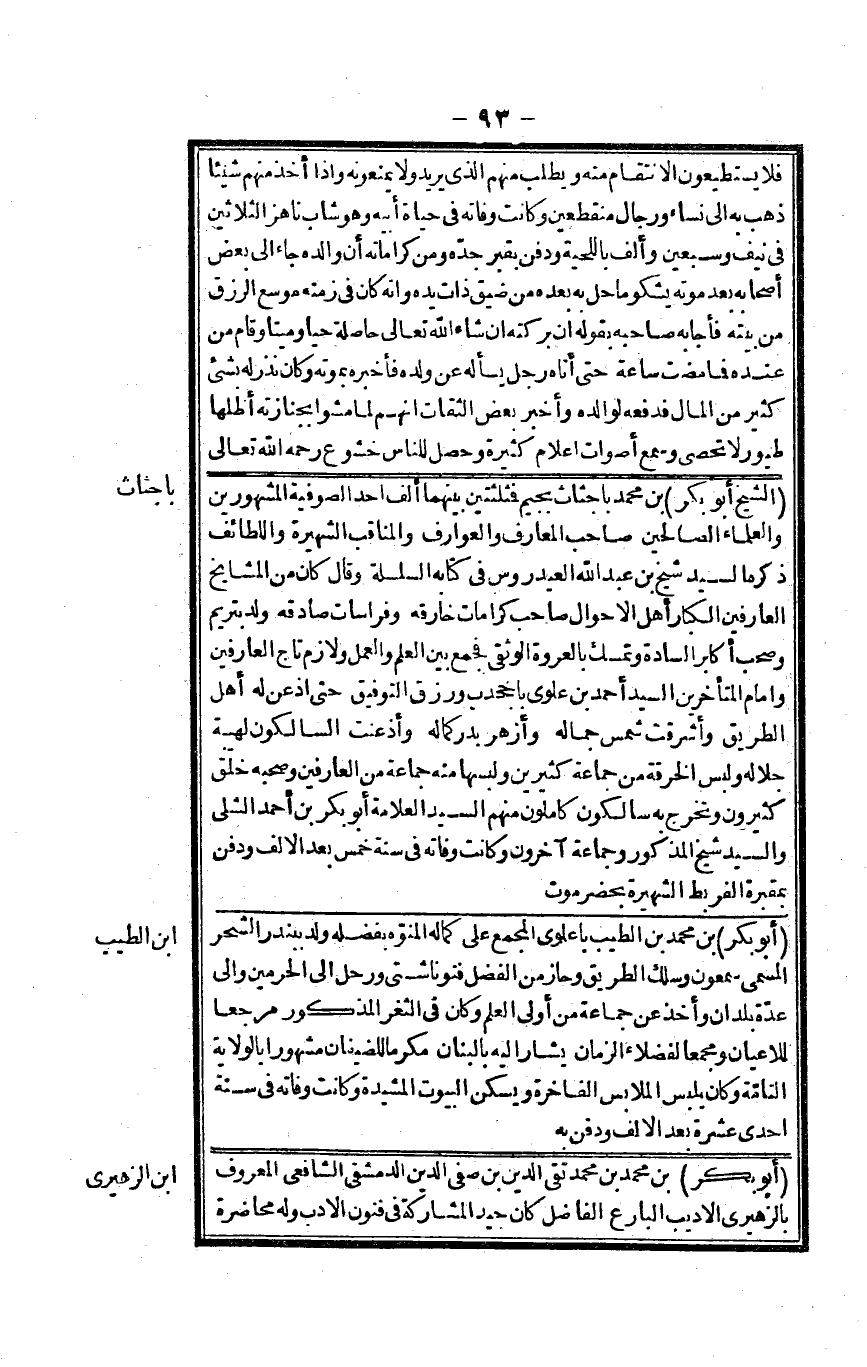 - ٩٣ -
فلا يستطيعون الانتقام منه ويطلب منهم الذى يريد ولا يمنعونه واذا أخذ منهم شيئا
ذهب به الى نساء ورجال منقطعين وكانت وفاته فى حياة أبيه وهو شاب ناهز الثلاثين
فى نيف وسبعين وألف باللحية ودفن بقبر جدّه ومن كراماته أن والده جاء الى بعض
أصحابه بعد موته يشكو ما حل به بعده من ضيق ذات يده وانه كان فى زمنه موسع الرزق
من بيته فأجابه صاحبه بقوله ان بركته ان شاء الله تعالى حاصلة حيا وميتا وقام من
عنده فما مضت ساعة حتى أتاه رجل يسأله عن ولده فأخبره بموته وكان نذر له بشئ
كثير من المال فدفعه لوالده وأخبر بعض الثقات انهم لما مشوا بجنازته أظلها
طيور لا تحصى وسمع أصوات اعلام كثيرة وحصل للناس خشوع رحمه الله تعالى
باجثاث
(الشيخ أبو بكر) بن محمد باجثاث بجيم فثلثتين بينهما ألف احد الصوفية المشهورين
والعلماء الصالحين صاحب المعارف والعوارف والمناقب الشهيرة واللطائف
ذكره السيد شيخ بن عبد الله العيدروس فى كتابه السلسلة وقال كان من المشايخ
العارفين الكبار أهل الاحوال صاحب كرامات خارقه وفراسات صادقه ولد بتريم
وصحب أكابر السادة وتمسك بالعروة الوثقى فجمع بين العلم والعمل ولازم تاج العارفين
وامام المتأخرين السيد أحمد بن علوى باجحدب ورزق التوفيق حتى اذعن له أهل
الطريق وأشرقت شمس جماله وأزهر بدر كماله وأذعنت السالكون لهيبة
جلاله ولبس الخرقة من جماعة كثيرين ولبسها منه جماعة من العارفين وصحبه خلق
كثيرون وتخرج به سالكون كاملون منهم السيد العلامة أبو بكر بن أحمد الشلى
والسيد شيخ المذكور وجماعة آخرون وكانت وفاته فى سنة خمس بعد الالف ودفن
بمقبرة الفريط الشهيرة بحضرموت
ابن الطيب
(أبو بكر) بن محمد بن الطيب باعلوى المجمع على كماله المنوّه بفضله ولد ببندر الشحر
المسمى بمعون وسلك الطريق وحاز من الفضل فنونا شتى ورحل الى الحرمين والى
عدّة بلدان وأخذ عن جماعة من أولى العلم وكان فى الثغر المذكور مرجعا
للاعيان ومجمعا لفضلاء الزمان يشار اليه بالبنان مكرما للضيفان مشهورا بالولاية
التامّة وكان يلبس الملابس الفاخرة ويسكن البيوت المشيدة وكانت وفاته فى سنة
احدى عشرة بعد الالف ودفن به
ابن الزهيرى
(أبو بكر) بن محمد بن محمد تقى الدين بن صفى الدين الدمشقى الشافعى المعروف
بالزهيرى الاديب البارع الفاضل كان جيد المشاركة فى فنون الادب وله محاضرة